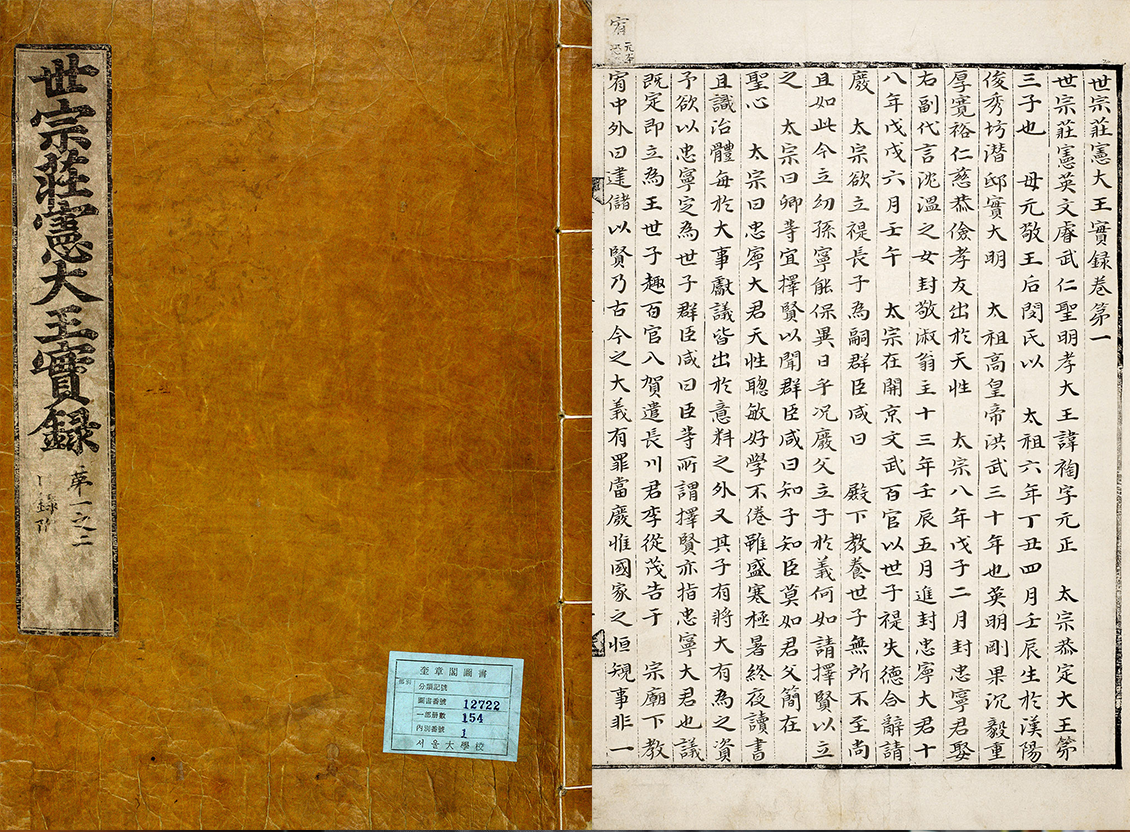 世宗莊憲大王實錄
第一之二
奎章閣圖書
分類記號
圖書番號 12722
一部册數 154
內別番號 1
서울大學校
宥
世宗莊憲大王實録卷第一
世宗莊憲英文睿武仁聖明孝大王諱裪字元正 太宗恭定大王第
三子也 母元敬王后閔氏以 太祖六年丁丑四月壬辰生於漢陽
俊秀坊潛邸實大明 太祖高皇帝洪武三十年也英明剛果沉毅重
厚寬裕仁慈恭儉孝友出於天性 太宗八年戊子二月封忠寧君娶
右副代言沈溫之女封敬淑翁主十三年壬辰五月進封忠寧大君十
八年戊戌六月壬午 太宗在開京文武百官以世子禔失德合辭請
廢 太宗欲立禔長子為嗣群臣咸曰 殿下教養世子無所不至尚
且如此今立幼孫寧能保異日乎况廢父立子於義何如請擇賢以立
之 太宗曰卿等宜擇賢以聞群臣咸曰知子知臣莫如君父簡在
聖心 太宗曰忠寧大君天性聰敏好學不倦雖盛寒極暑終夜讀書
且識治體每於大事獻議皆出於意料之外又其子有將大有為之資
予欲以忠寧定為世子群臣咸曰臣等所謂擇賢亦指忠寧大君也議
既定即立為王世子趣百官入賀遣長川君李從茂告于 宗廟下教
宥中外曰建儲以賢乃古今之大義有罪當廢惟國家之恒規事非一